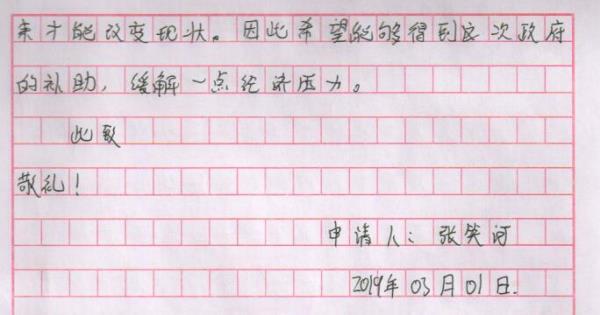 来才能改变现状。因此希望能够得到这次政府
的补助，缓解一点经济压力。
此致
敬礼！
申请人：张笑河
2019年03月01日.